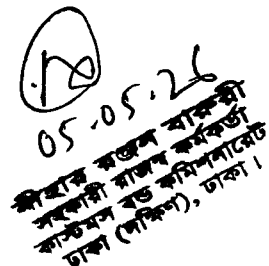 05.05.26
নীহার রঞ্জন বারুরী
সহকারী রাজস্ব কর্মকর্তা
কাস্টমস বন্ড কমিশনারেট
ঢাকা (দক্ষিণ), ঢাকা।